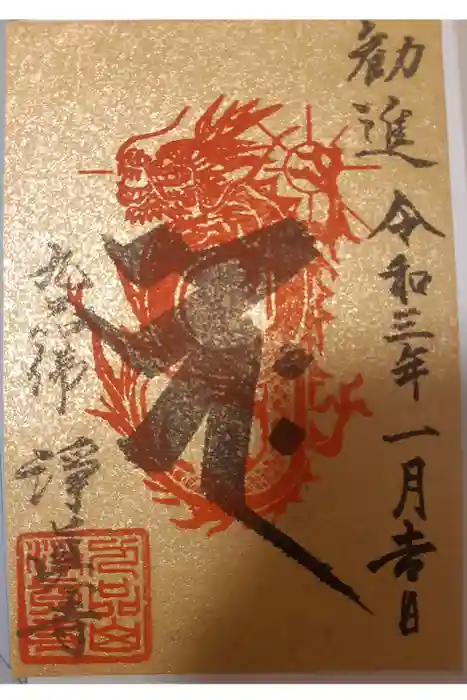 勧進 令和三年一月吉日
九品佛 淨真寺